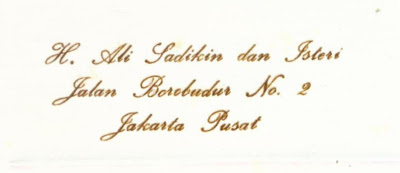 H. Ali Sadikin dan Isteri
Jalan Borobudur No. 2
Jakarta Pusat